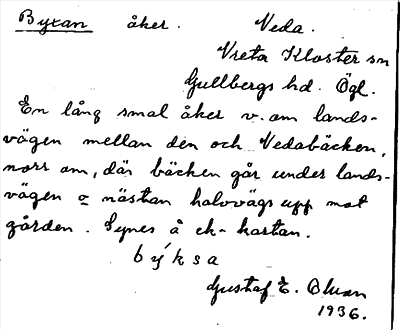 Byxan åker. Veda.
Vreta Kloster sn
Gullbergs hd. Ögl.
En lång smal åker v. om lands-
vägen mellan den och Vedabäcken,
norr om, där bäcken går under lands-
vägen o nästan halvvägs upp mot
gården. Synes å ek-kartan.
býksa
Gustaf E. Bluan
1936.